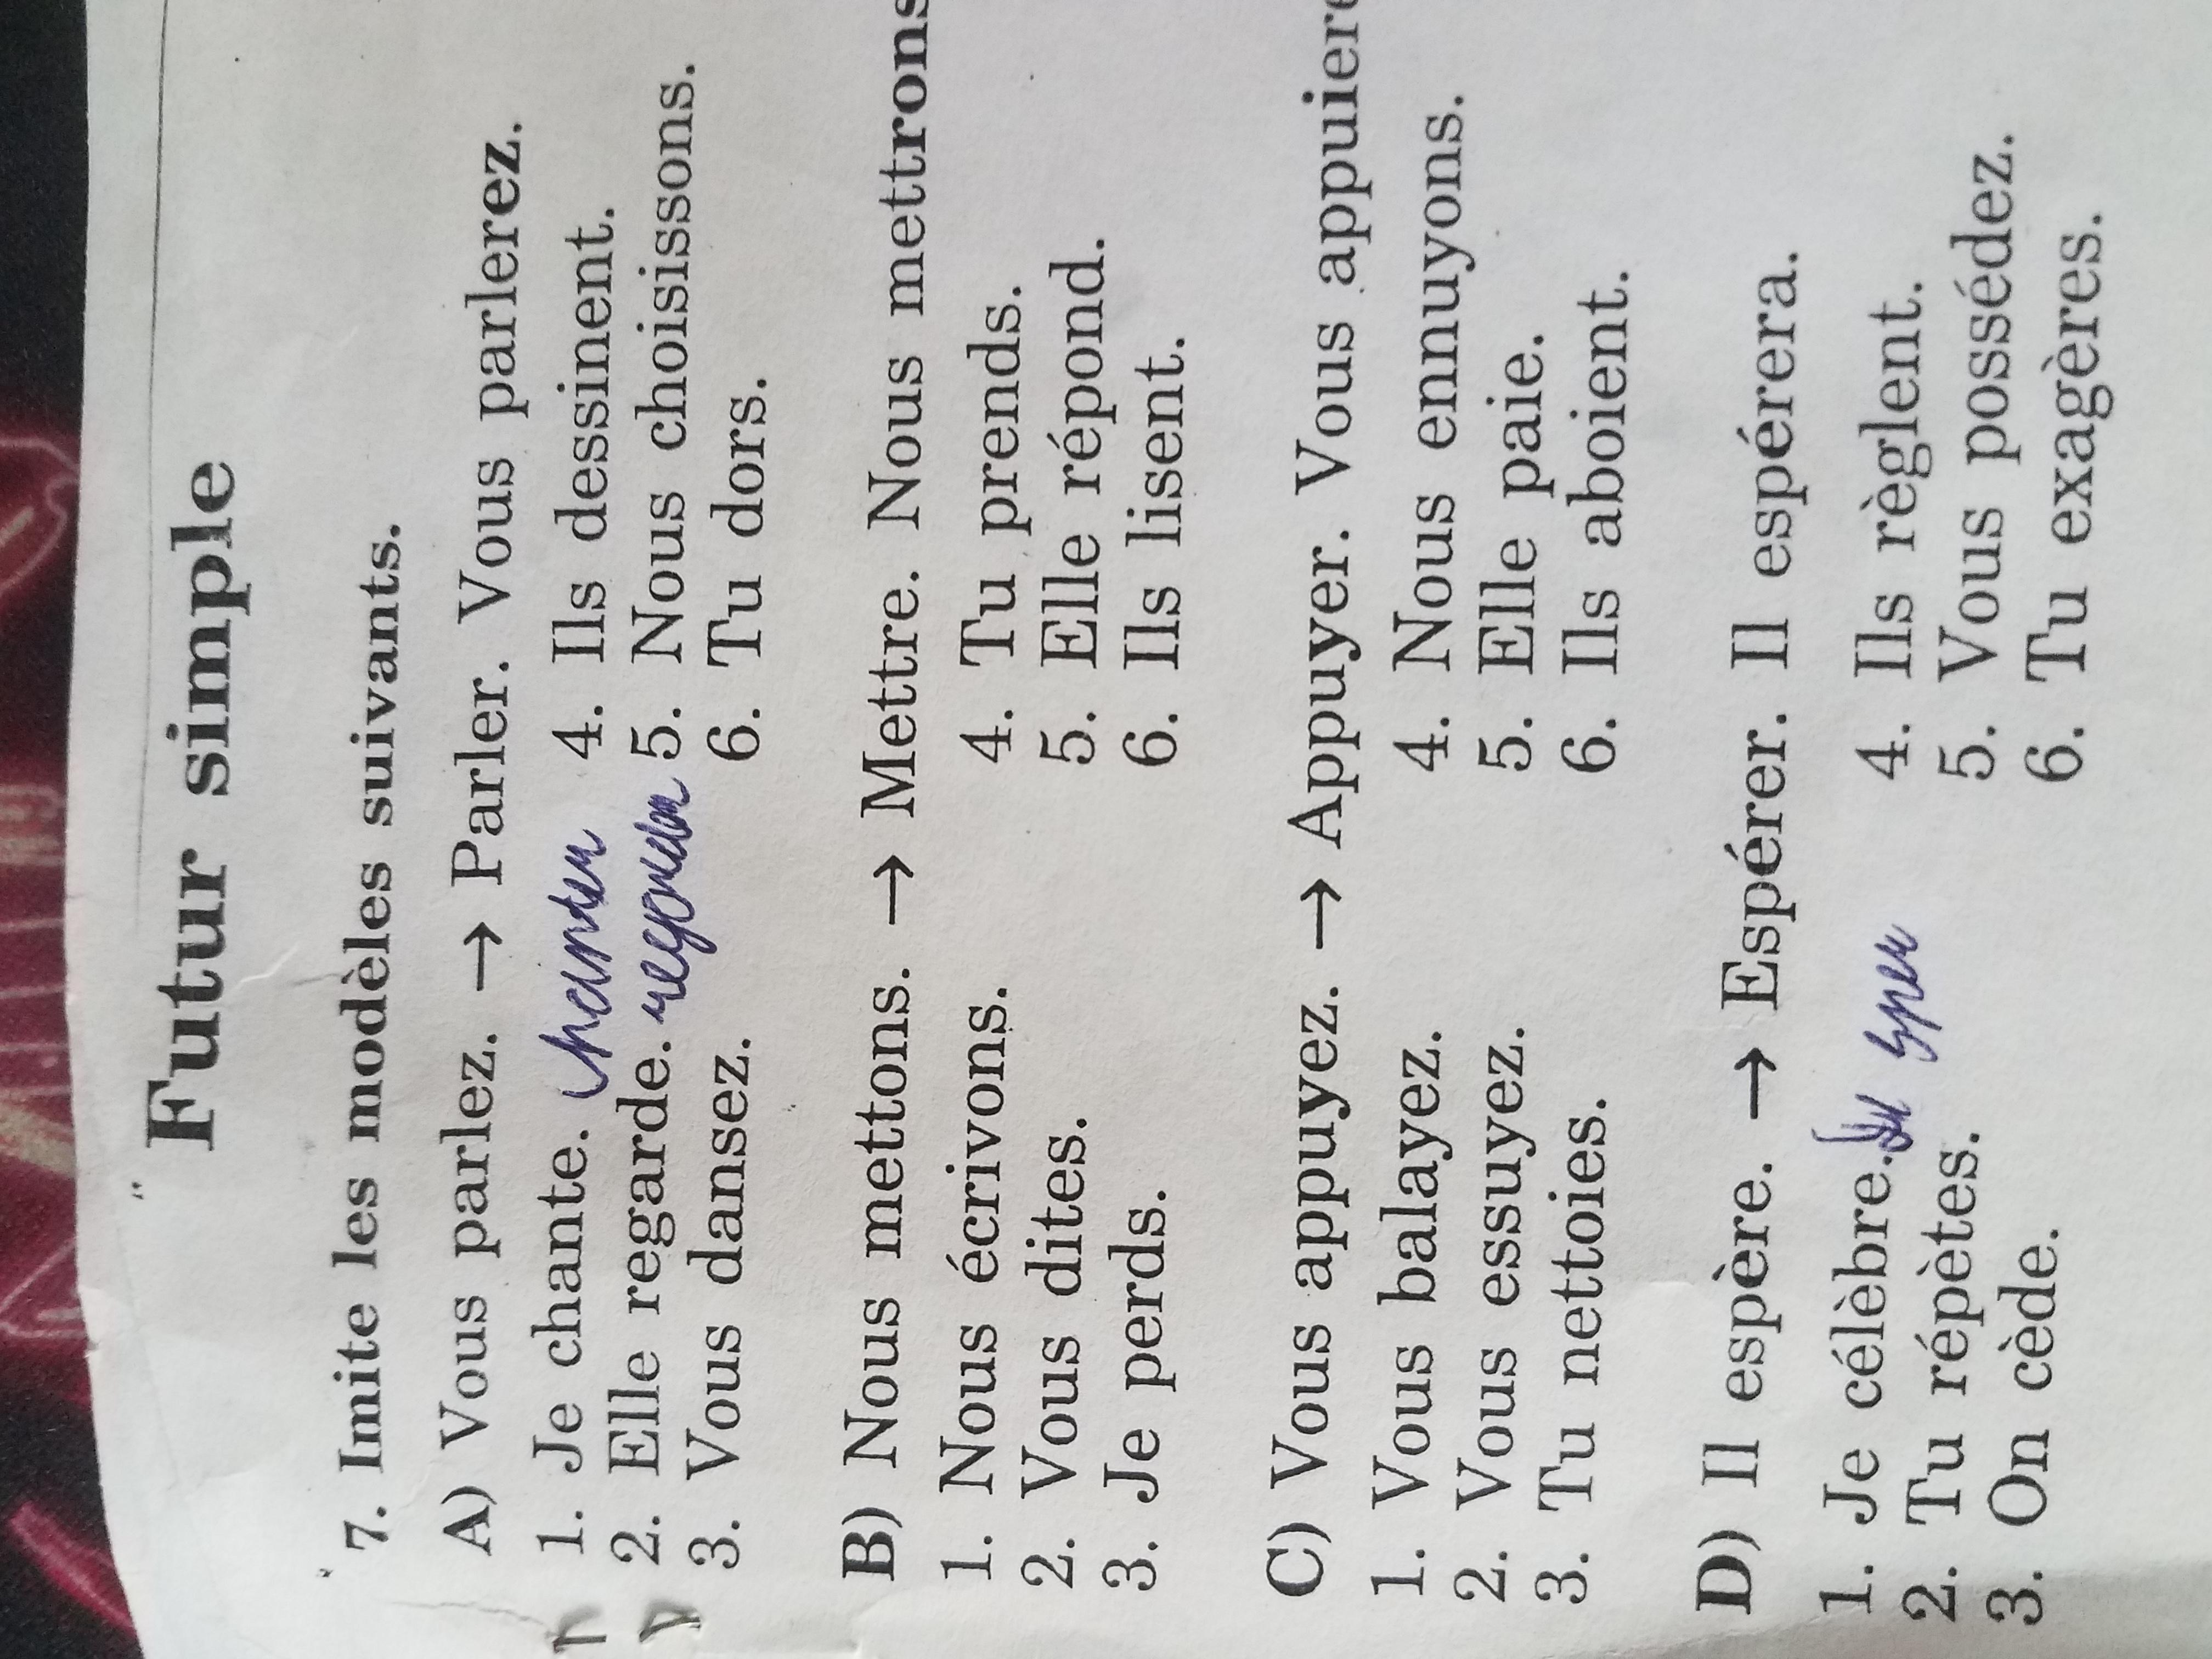 Futur simple
7. Imite les modèles suivants.
A) Vous parlez. → Parler. Vous parlerez.
1. Je chante. 4. Ils dessinent.
2. Elle regarde. 5. Nous choisissons.
3. Vous dansez. 6. Tu dors.
B) Nous mettons. → Mettre. Nous mettrons
1. Nous écrivons. 4. Tu prends.
2. Vous dites. 5. Elle répond.
3. Je perds. 6. Ils lisent.
C) Vous appuyez. → Appuyer. Vous appuiere
1. Vous balayez. 4. Nous ennuyons.
2. Vous essuyez. 5. Elle paie.
3. Tu nettoies. 6. Ils aboient.
D) Il espère. → Espérer. Il espérera.
1. Je célèbre. 4. Ils règlent.
2. Tu répètes. 5. Vous possédez.
3. On cède. 6. Tu exagères.